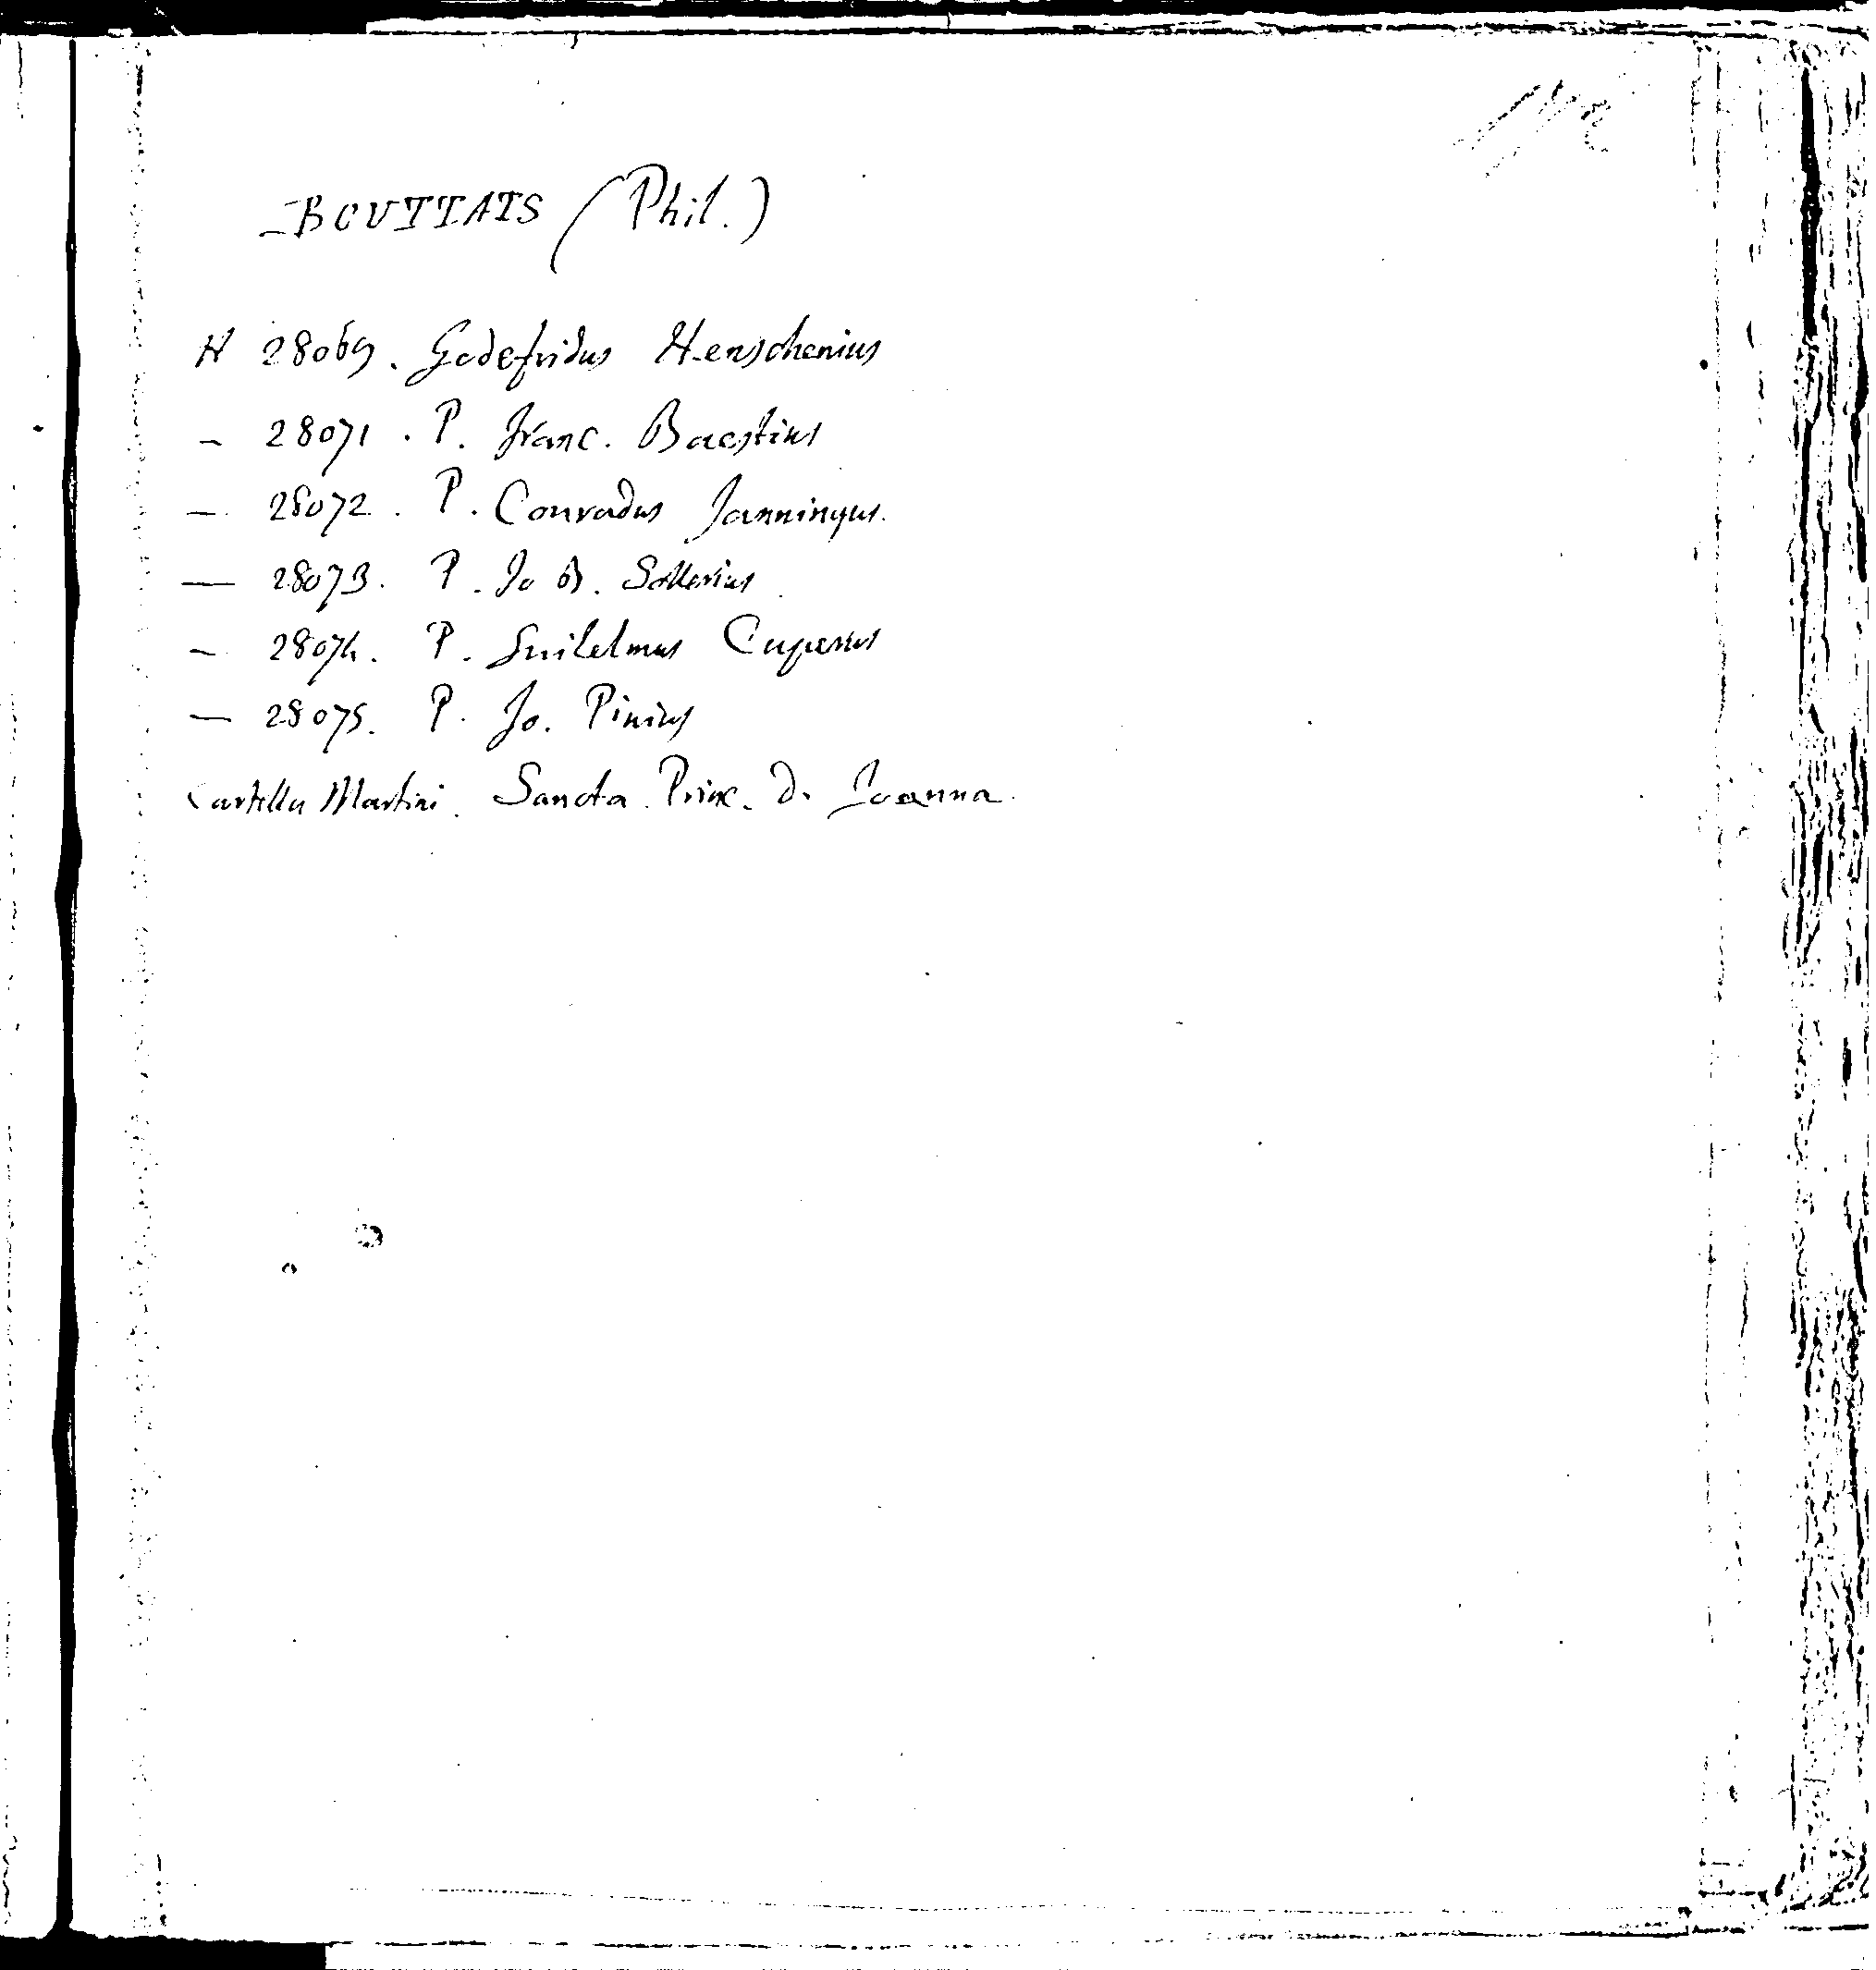 BOUTTATS (Phil.)
H 28069. Godefridus Henschenius
- 28071. P. Franc. Baestius
- 28072. P. Conradus Janningus.
- 28073. P. Jo B. Sollerius
- 28074. P. Guilelmus Cuperus
- 28075. P. Jo. Pinius
Martini. Sancta Princ. D. Joanna.